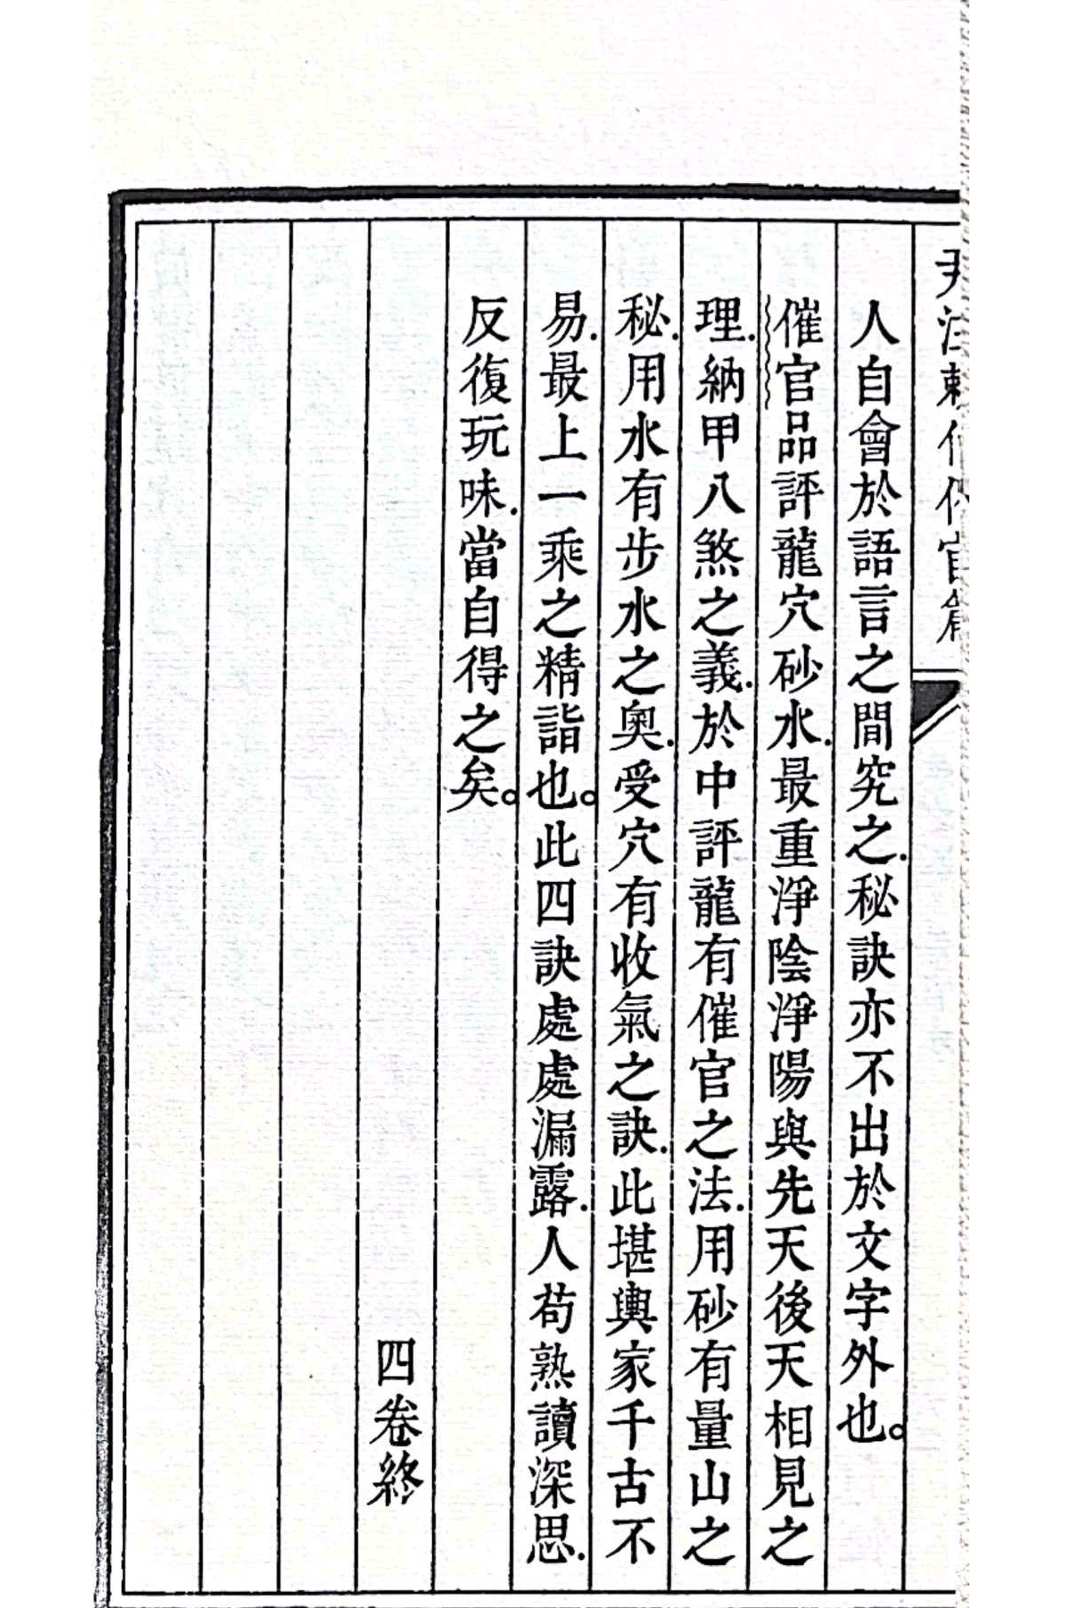 尹注賴仙催官篇
人自會於語言之間究之.秘訣亦不出於文字外也。
催官品評龍穴砂水.最重淨陰淨陽與先天後天相見之
理.納甲八煞之義.於中評龍有催官之法.用砂有量山之
秘.用水有步水之奧.受穴有收氣之訣.此堪輿家千古不
易.最上一乘之精詣也。此四訣處處漏露.人苟熟讀深思.
反復玩味.當自得之矣。
四卷終